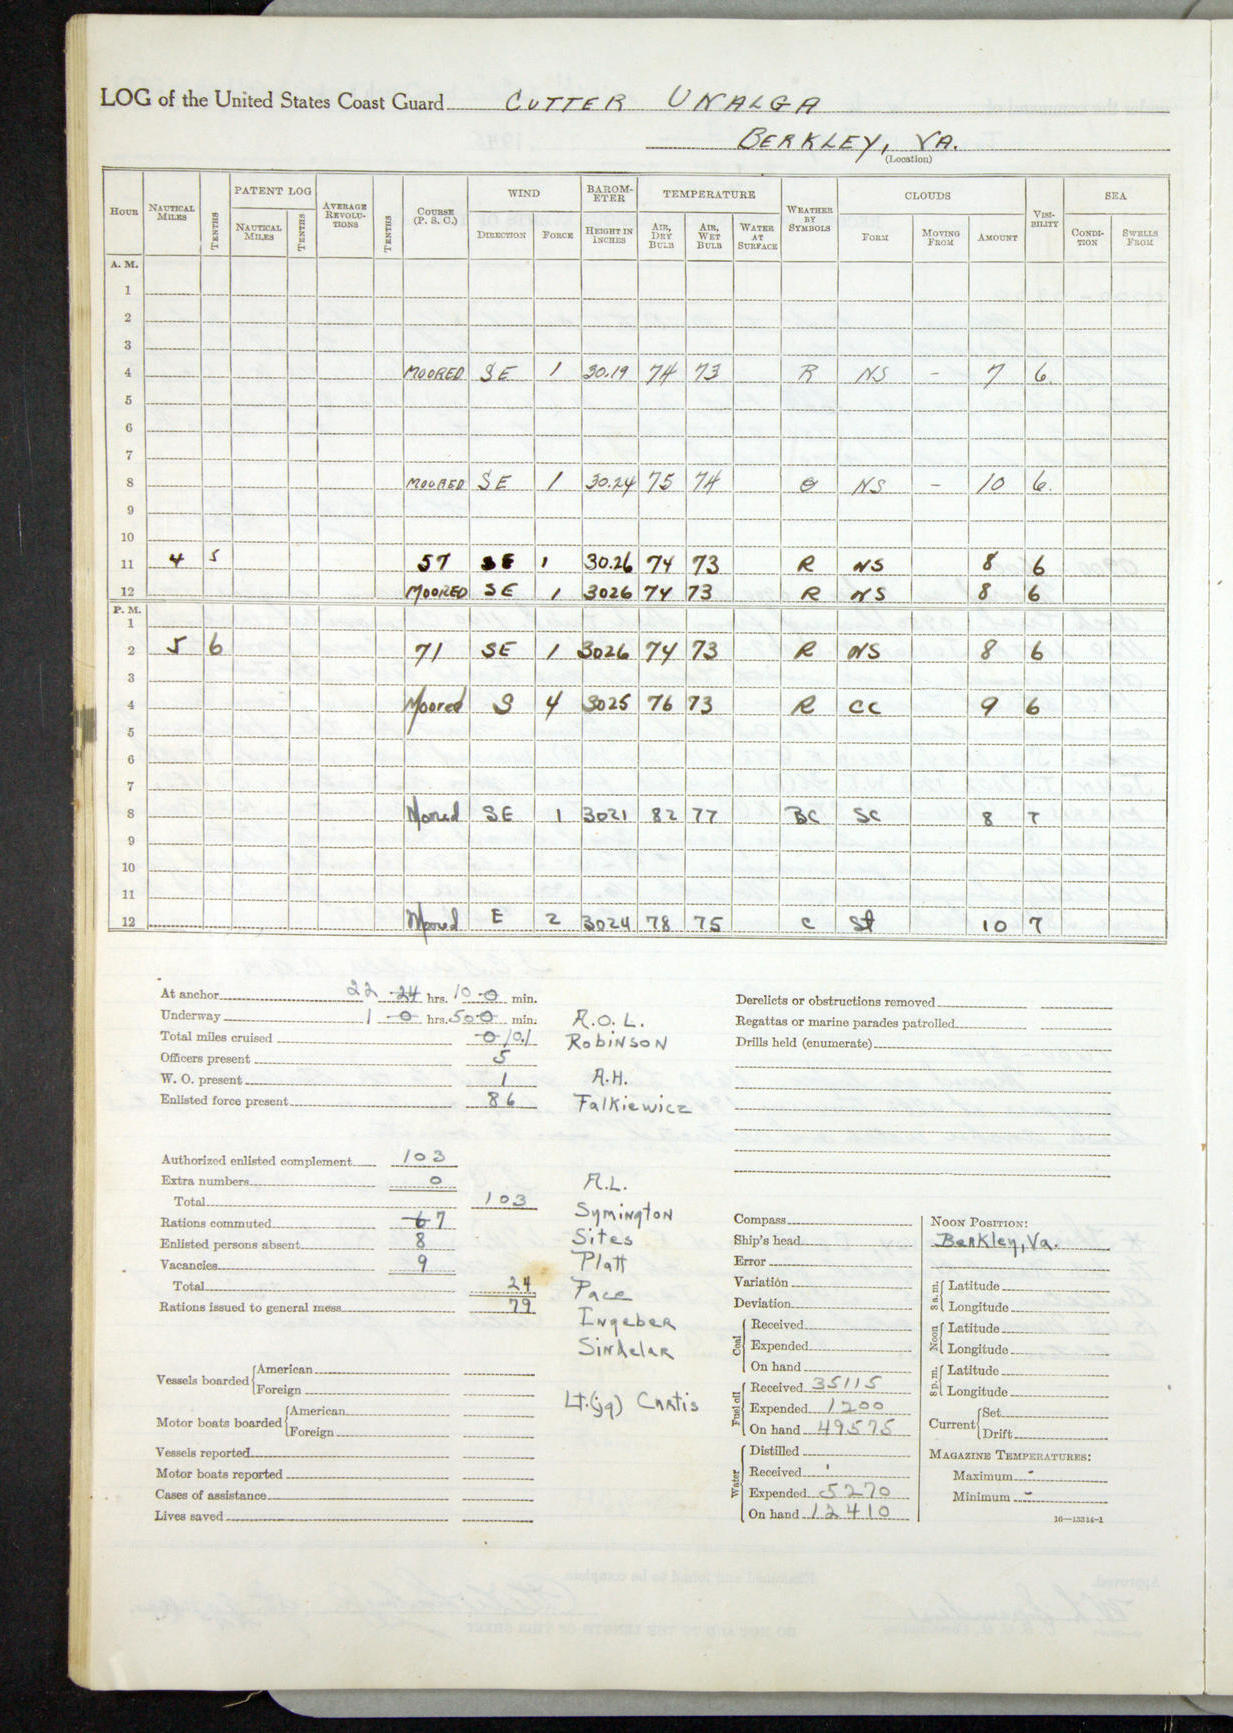 LOG of the United States Coast Guard CUTTER UNALGA
BERKLEY, VA.
(Location)
HOUR NAUTICAL MILES TENTHS PATENT LOG NAUTICAL MILES TENTHS AVERAGE REVOLUTIONS TENTHS COURSE (P. S. C.) WIND DIRECTION FORCE BAROMETER HEIGHT IN INCHES TEMPERATURE AIR, DRY BULB AIR, WET BULB WATER AT SURFACE WEATHER BY SYMBOLS CLOUDS FORM MOVING FROM AMOUNT VISIBILITY SEA CONDITION SWELLS FROM
A. M.
1
2
3
4 MOORED SE 1 30.19 74 73 R NS - 7 6.
5
6
7
8 MOORED SE 1 30.24 75 74 O NS - 10 6.
9
10
11 4 5 57 SE 1 30.26 74 73 R NS 8 6
12 MOORED SE 1 3026 74 73 R NS 8 6
P. M.
1
2 5 6 71 SE 1 3026 74 73 R NS 8 6
3
4 Moored S 4 3025 76 73 R CC 9 6
5
6
7
8 Moored SE 1 3021 82 77 BC SC 8 7
9
10
11
12 Moored E 2 3024 78 75 C St 10 7
At anchor 22 24 hrs. 10 0 min.
Underway 1 0 hrs. 50 0 min.
Total miles cruised 0 10.1
Officers present 5
W. O. present 1
Enlisted force present 86
Authorized enlisted complement 103
Extra numbers 0
Total 103
Rations commuted 6 7
Enlisted persons absent 8
Vacancies 9
Total 24
Rations issued to general mess 79
Vessels boarded American
Foreign
Motor boats boarded American
Foreign
Vessels reported
Motor boats reported
Cases of assistance
Lives saved
A.O.L.
Robinson
A.H.
Falkiewicz
A.L.
Symington
Sites
Platt
Pace
Ingeber
Sinkelar
Lt.(jg) Curtis
Derelicts or obstructions removed
Regattas or marine parades patrolled
Drills held (enumerate)
Compass
Ship's head
Error
Variation
Deviation
Coal
Received
Expended
On hand
Fuel oil
Received 35115
Expended 1200
On hand 49575
Water
Distilled
Received
Expended 5270
On hand 12410
NOON POSITION:
Berkley, Va.
8 a.m. Latitude
Longitude
Noon Latitude
Longitude
8 p.m. Latitude
Longitude
Current Set
Drift
MAGAZINE TEMPERATURES:
Maximum -
Minimum -
16—13314-1